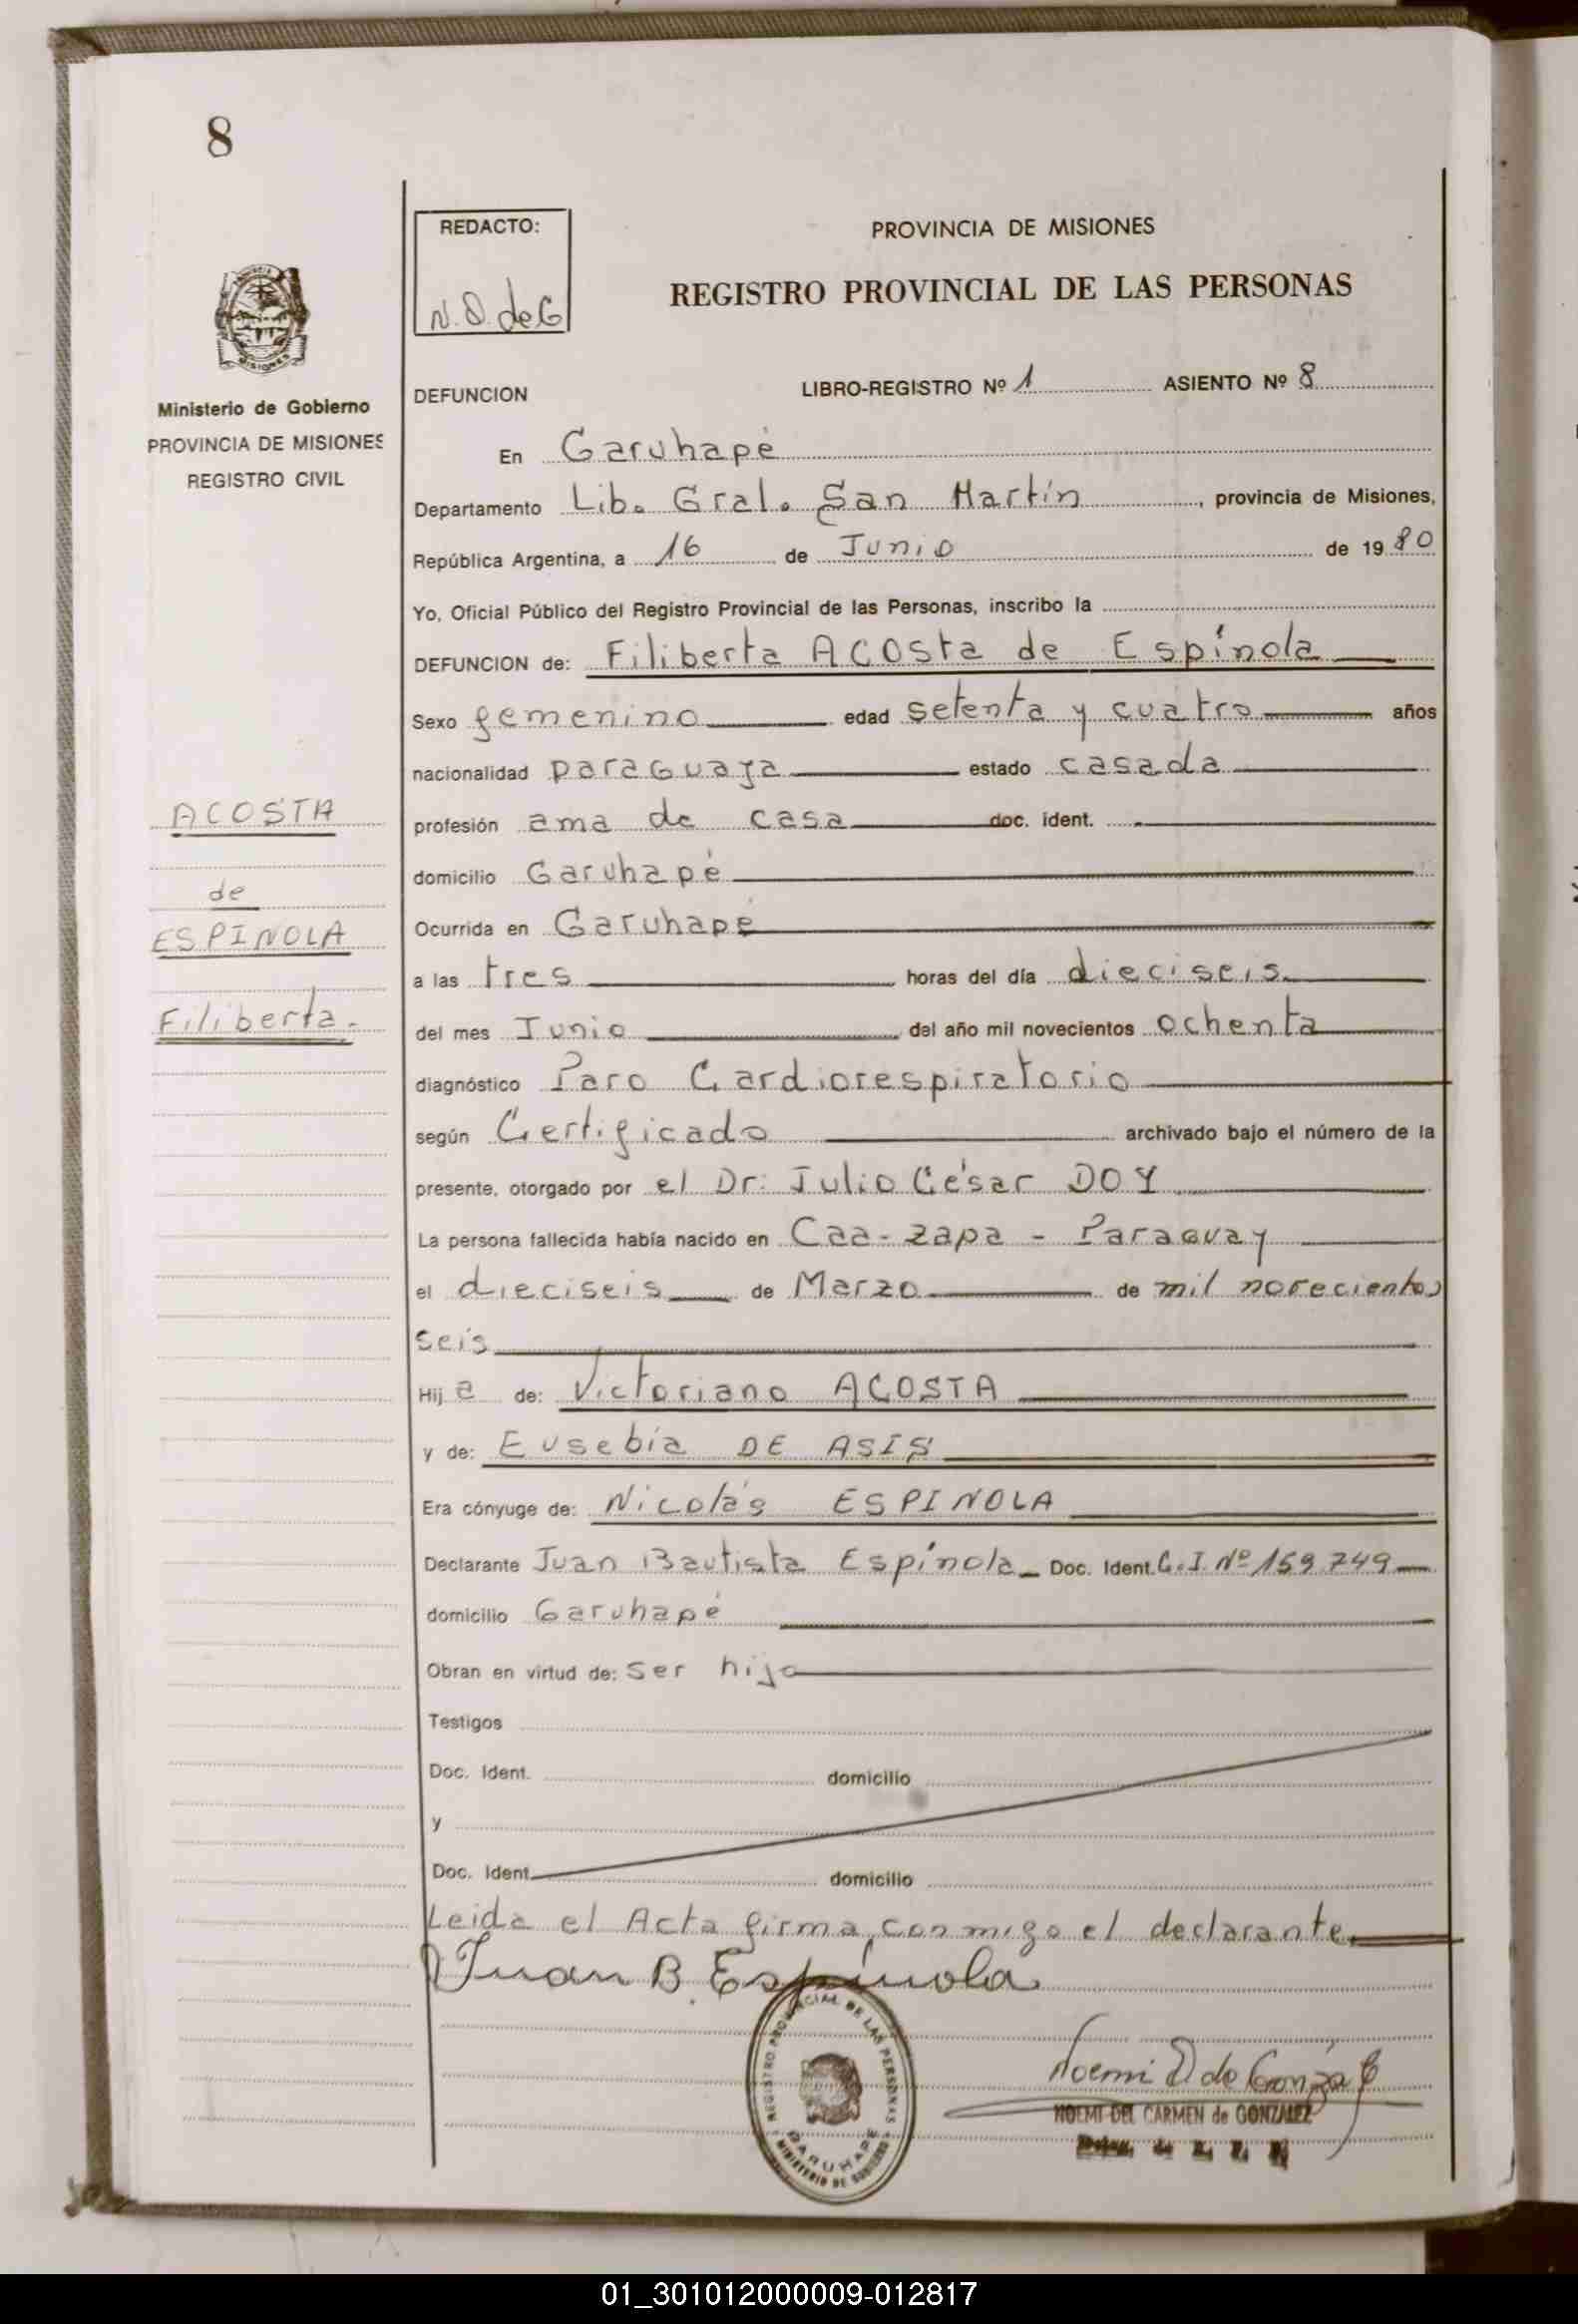 8
REDACTO:
N.D. de G
PROVINCIA DE MISIONES
REGISTRO PROVINCIAL DE LAS PERSONAS
Ministerio de Gobierno
PROVINCIA DE MISIONES
REGISTRO CIVIL
DEFUNCION LIBRO-REGISTRO Nº 1 ASIENTO Nº 8
En Garuhapé
Departamento Lib. Gral. San Martín, provincia de Misiones,
República Argentina, a 16 de Junio de 1980
Yo, Oficial Público del Registro Provincial de las Personas, inscribo la
DEFUNCION de: Filiberta ACOSta de Espínola
Sexo femenino edad setenta y cuatro años
nacionalidad paraguaya estado casada
ACOSTA
de
ESPINOLA
Filiberta.
profesión ama de casa doc. ident.
domicilio Garuhapé
Ocurrida en Garuhapé
a las tres horas del día dieciseis
del mes Junio del año mil novecientos ochenta
diagnóstico Paro Cardiorespiratorio
según Certificado archivado bajo el número de la
presente, otorgado por el Dr. Julio César DOY
La persona fallecida había nacido en Caa-zapa - Paraguay
el dieciseis de Marzo de mil novecientos
seis
Hija de: Victoriano ACOSTA
y de: Eusebia DE ASIS
Era cónyuge de: Nicolás ESPINOLA
Declarante Juan Bautista Espínola Doc. Ident. C.I. Nº 159.749
domicilio Garuhapé
Obran en virtud de: ser hijo
Testigos
Doc. Ident. domicilio
y
Doc. Ident. domicilio
Leida el Acta firma, conmigo el declarante.
Juan B. Espínola
REGISTRO PROVINCIAL DE LAS PERSONAS
GARUHAPE
MINISTERIO DE GOBIERNO
Noemi D de Gonzalez
NOEMI DEL CARMEN de GONZALEZ
01_301012000009-012817